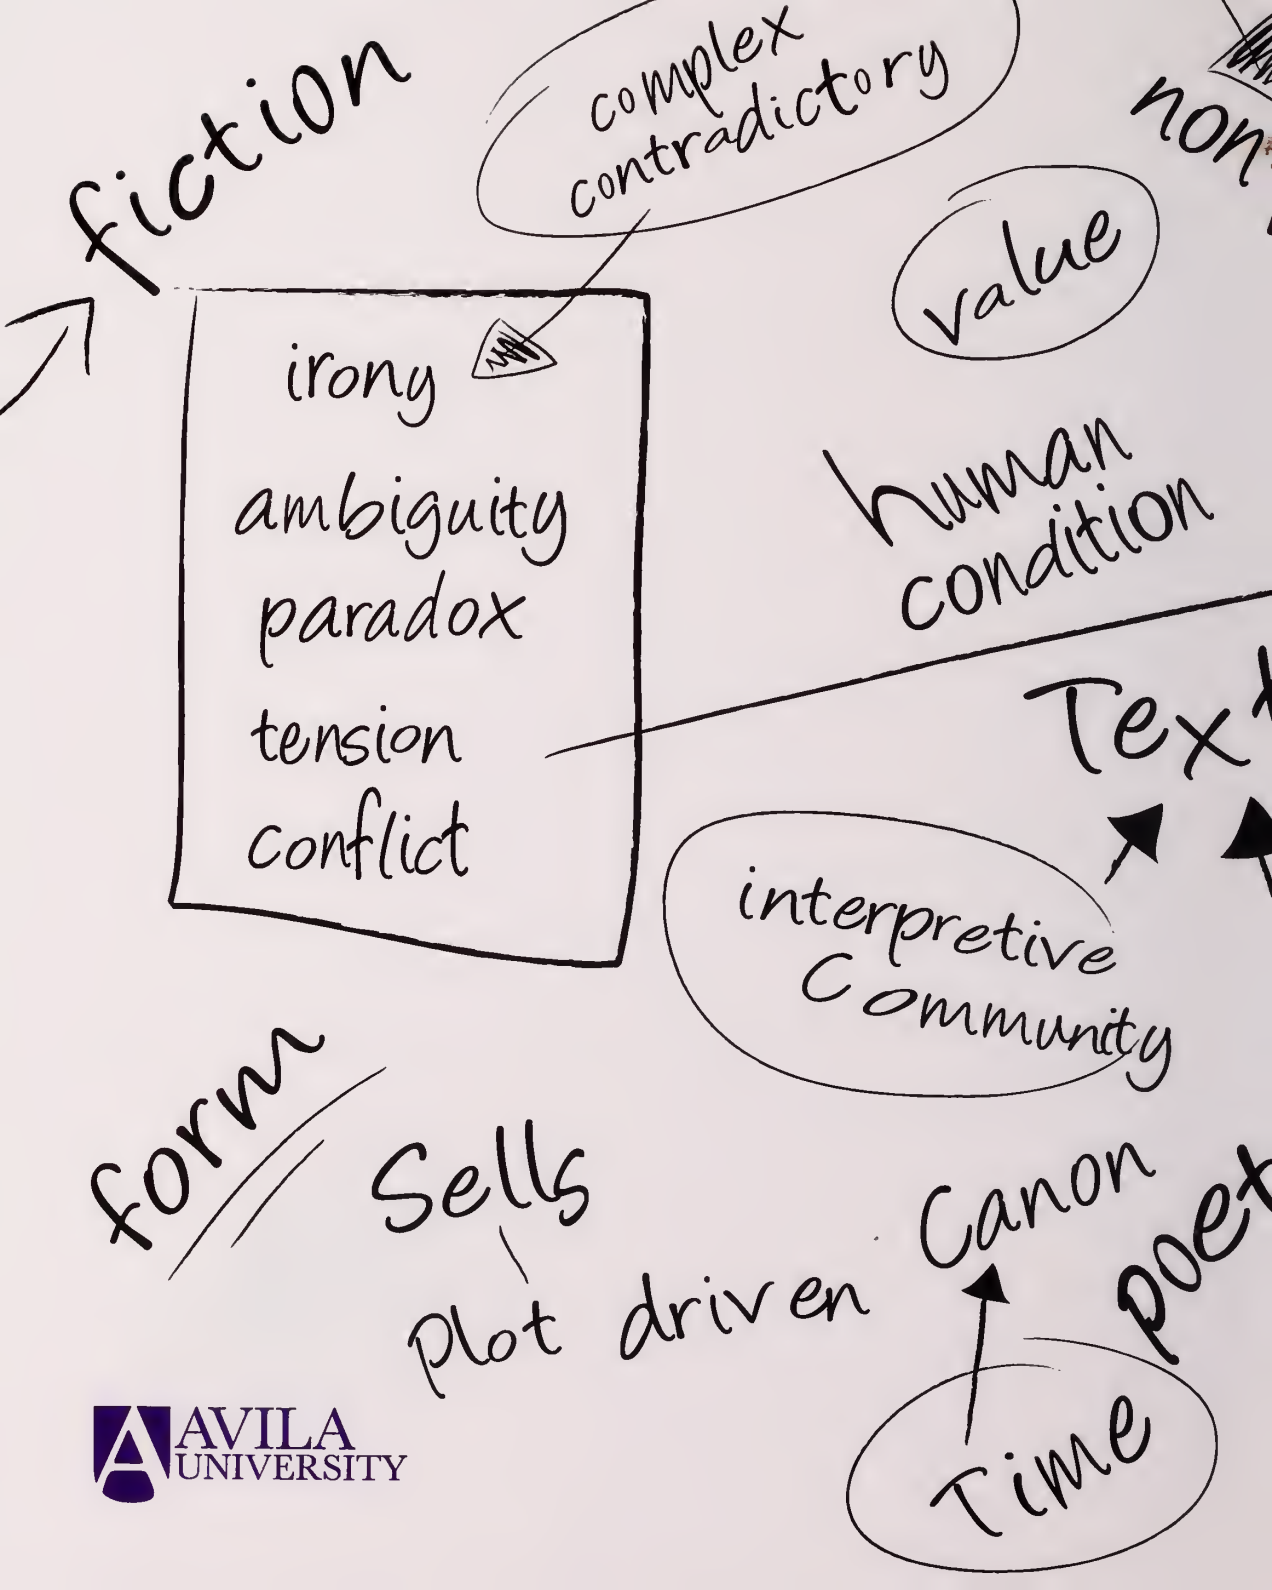 fiction
complex
contradictory
non-
value
irony
ambiguity
paradox
tension
conflict
human
condition
Text
interpretive
Community
form
Sells
Plot driven
Canon
poet
Time
AVILA
UNIVERSITY